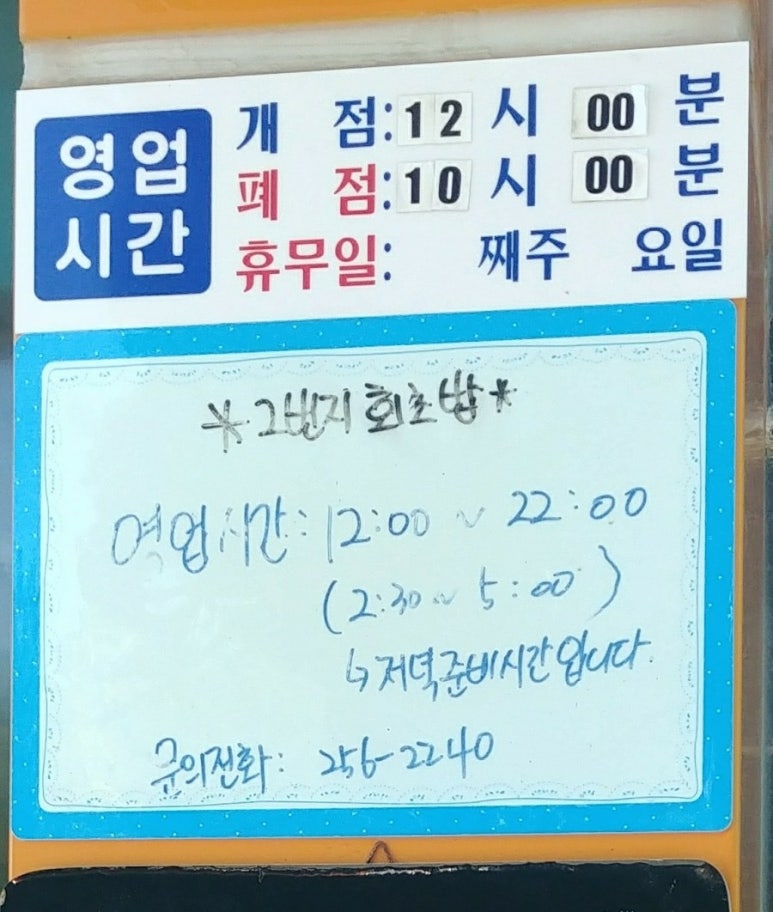 영업
시간
개 점: 12 시 00 분
폐 점: 10 시 00 분
휴무일: 째주 요일
*그번지 회초밥*
영업시간: 12:00 ~ 22:00
(2:30 ~ 5:00)
↳ 저녁준비시간입니다.
문의전화: 256-2240